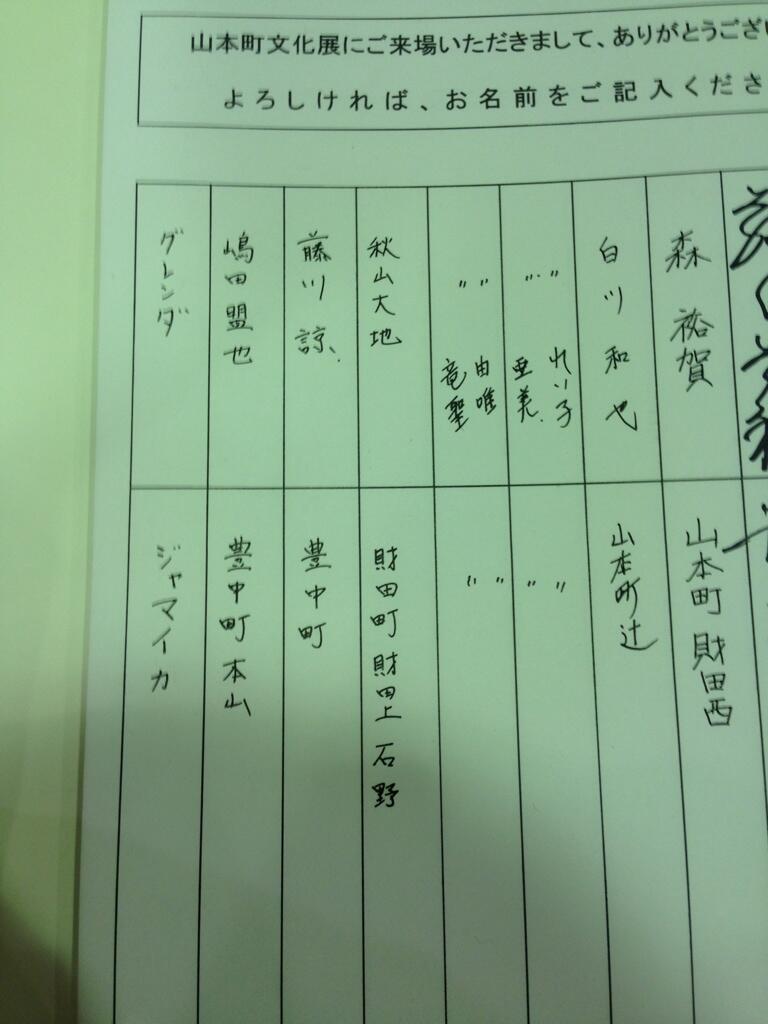 山本町文化展にご来場いただきまして、ありがとうござい
よろしければ、お名前をご記入くださ
森 祐賀
山本町財田西
白川和也
山本町辻
〃 れい子
亜美
〃
〃 由唯
竜聖
〃
秋山大地
財田町財田上石野
藤川諒
豊中町
嶋田盟也
豊中町本山
グレンダ
ジャマイカ